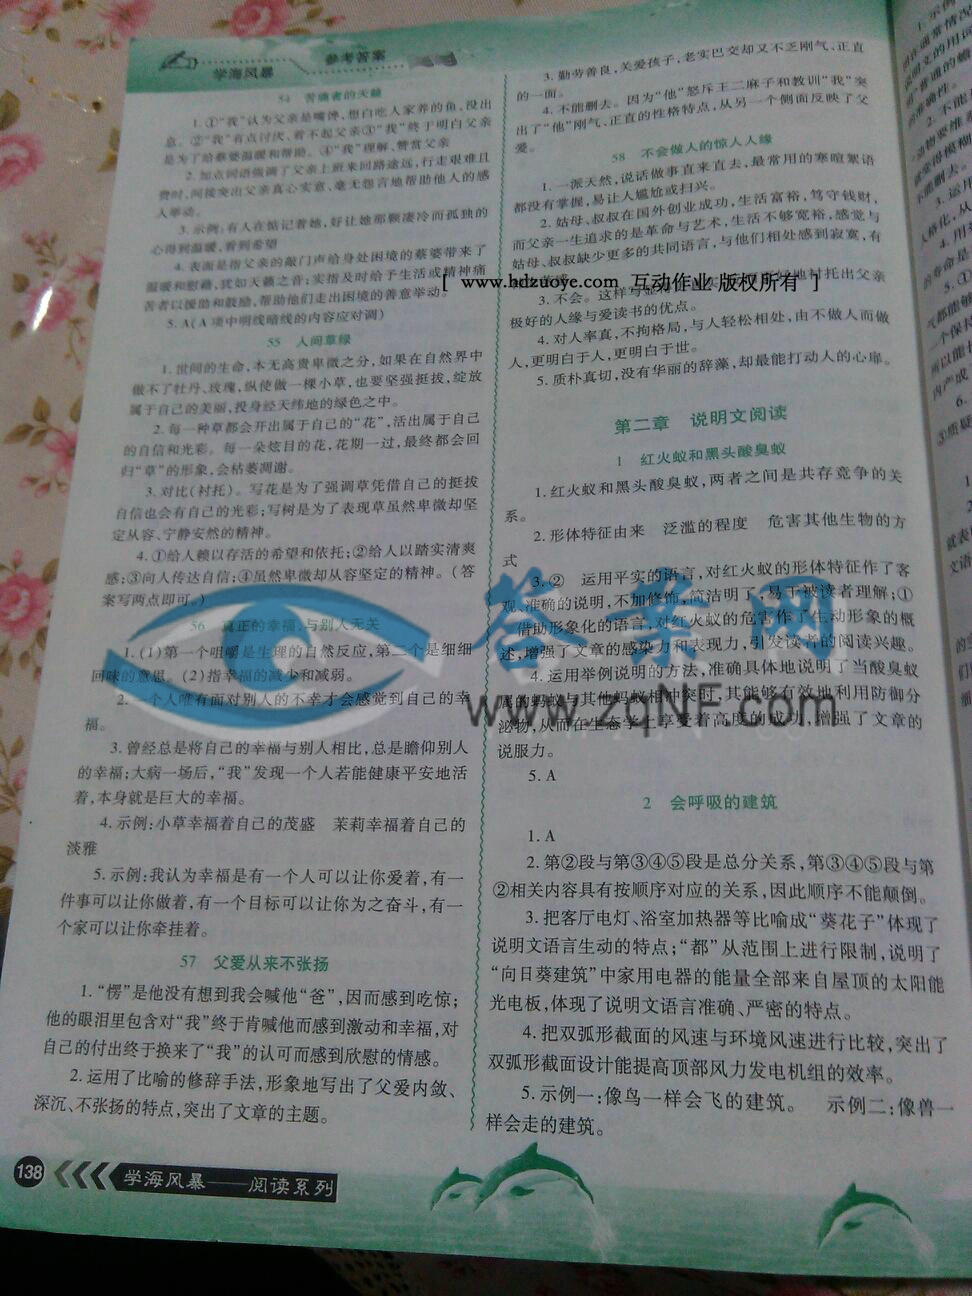 学海风暴
参考答案
54 苦痛者的天籁
1.①“我”认为父亲是嘴馋,想白吃人家养的鱼,没出
息。②“我”有点讨厌、看不起父亲③“我”终于明白父亲
是为了给蔡婆温暖和帮助。④“我”理解、赞赏父亲
2.加点词语强调了父亲上班来回路途远,行走艰难且
费时,间接突出父亲真心实意、毫无怨言地帮助他人的感
人举动。
3.示例:有人在惦记着她,好让她那颗凄冷而孤独的
心得到温暖,看到希望
4.表面是指父亲的敲门声给身处困境的蔡婆带来了
温暖和慰藉,犹如天籁之音;实指及时给予生活或精神痛
苦者以援助和鼓励,帮助他们走出困境的善意举动。
5.A(A项中明线暗线的内容应对调)
55 人间草绿
1.世间的生命,本无高贵卑微之分,如果在自然界中
做不了牡丹、玫瑰,纵使做一棵小草,也要坚强挺拔,绽放
属于自己的美丽,投身经天纬地的绿色之中。
2.每一种草都会开出属于自己的“花”,活出属于自己
的自信和光彩。每一朵炫目的花,花期一过,最终都会回
归“草”的形象,会枯萎凋谢。
3.对比(衬托)。写花是为了强调草凭借自己的挺拔
自信也会有自己的光彩;写树是为了表现草虽然卑微却坚
定从容、宁静安然的精神。
4.①给人赖以存活的希望和依托;②给人以踏实清爽
感;③向人传达自信;④虽然卑微却从容坚定的精神。(答
案写两点即可。)
56 真正的幸福,与别人无关
1.(1)第一个咀嚼是生理的自然反应,第二个是细细
回味的意思。(2)指幸福的减少和减弱。
2.一个人唯有面对别人的不幸才会感觉到自己的幸
福。
3.曾经总是将自己的幸福与别人相比,总是瞻仰别人
的幸福;大病一场后,“我”发现一个人若能健康平安地活
着,本身就是巨大的幸福。
4.示例:小草幸福着自己的茂盛 茉莉幸福着自己的
淡雅
5.示例:我认为幸福是有一个人可以让你爱着,有一
件事可以让你做着,有一个目标可以让你为之奋斗,有一
个家可以让你牵挂着。
57 父爱从来不张扬
1.“愣”是他没有想到我会喊他“爸”,因而感到吃惊;
他的眼泪里包含对“我”终于肯喊他而感到激动和幸福,对
自己的付出终于换来了“我”的认可而感到欣慰的情感。
2.运用了比喻的修辞手法,形象地写出了父爱内敛、
深沉、不张扬的特点,突出了文章的主题。
3.勤劳善良,关爱孩子,老实巴交却又不乏刚气、正直
的一面。
4.不能删去。因为“他”怒斥王二麻子和教训“我”突
出了“他”刚气、正直的性格特点,从另一个侧面反映了父
爱。
58 不会做人的惊人人缘
1.一派天然,说话做事直来直去,最常用的寒暄絮语
都没有掌握,易让人尴尬或扫兴。
2.姑母、叔叔在国外创业成功,生活富裕,笃守钱财,
而父亲一生追求的是革命与艺术,生活不够宽裕,感觉与
姑母、叔叔缺少更多的共同语言,与他们相处感到寂寞,有
[ www.hdzuoye.com 互动作业 版权所有 ]
3.不会。这样写 地衬托出父亲
极好的人缘与爱读书的优点。
4.对人率真,不拘格局,与人轻松相处,由不做人而做
人,更明白于人,更明白于世。
5.质朴真切,没有华丽的辞藻,却最能打动人的心扉。
第二章 说明文阅读
1 红火蚁和黑头酸臭蚁
1.红火蚁和黑头酸臭蚁,两者之间是共存竞争的关
系。
2.形体特征由来 泛滥的程度 危害其他生物的方
式
3.② 运用平实的语言,对红火蚁的形体特征作了客
观、准确的说明,不加修饰,简洁明了,易于被读者理解;①
借助形象化的语言,对红火蚁的危害作了生动形象的概
述,增强了文章的感染力和表现力,引发读者的阅读兴趣。
4.运用举例说明的方法,准确具体地说明了当酸臭蚁
属的蚂蚁与其他蚂蚁相冲突时,其能够有效地利用防御分
泌物,从而在生态学上享受着高度的成功,增强了文章的
说服力。
5.A
2 会呼吸的建筑
1.A
2.第②段与第③④⑤段是总分关系,第③④⑤段与第
②相关内容具有按顺序对应的关系,因此顺序不能颠倒。
3.把客厅电灯、浴室加热器等比喻成“葵花子”体现了
说明文语言生动的特点;“都”从范围上进行限制,说明了
“向日葵建筑”中家用电器的能量全部来自屋顶的太阳能
光电板,体现了说明文语言准确、严密的特点。
4.把双弧形截面的风速与环境风速进行比较,突出了
双弧形截面设计能提高顶部风力发电机组的效率。
5.示例一:像鸟一样会飞的建筑。 示例二:像兽一
样会走的建筑。
答案网
www.zqNF.com
138
学海风暴——阅读系列